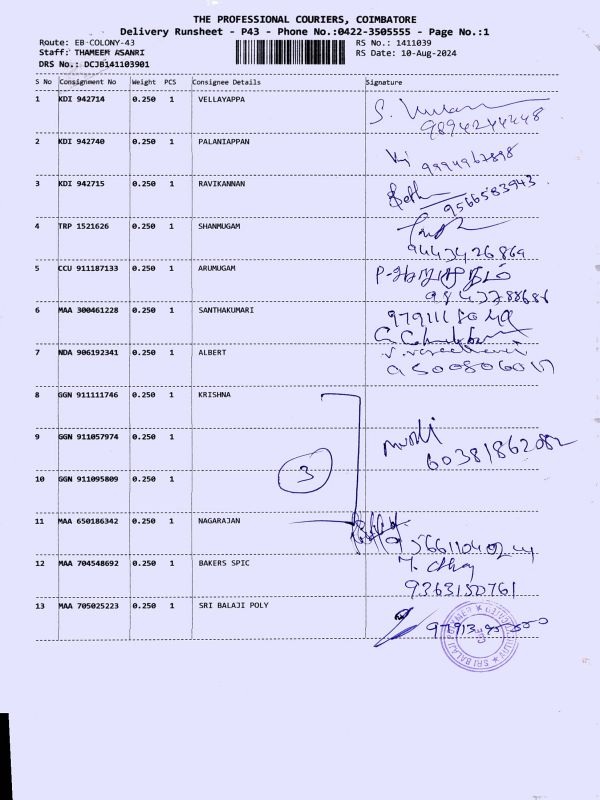 THE PROFESSIONAL COURIERS, COIMBATORE
Delivery Runsheet - P43 - Phone No.:0422-3505555 - Page No.:1
Route: EB-COLONY-43 RS No.: 1411039
Staff: THAMEEM ASANRI RS Date: 10-Aug-2024
DRS No.: DCJB141103901
S No Consignment No Weight PCS Consignee Details Signature
1 KDI 942714 0.250 1 VELLAYAPPA
9894244448
2 KDI 942740 0.250 1 PALANIAPPAN
9994967898
3 KDI 942715 0.250 1 RAVIKANNAN
9566583943
4 TRP 1521626 0.250 1 SHANMUGAM
9443426869
5 CCU 911187133 0.250 1 ARUMUGAM
6 MAA 300461228 0.250 1 SANTHAKUMARI
7 NDA 906192341 0.250 1 ALBERT
8 GGN 911111746 0.250 1 KRISHNA
9 GGN 911057974 0.250 1
10 GGN 911095809 0.250 1
3
11 MAA 650186342 0.250 1 NAGARAJAN
12 MAA 704548692 0.250 1 BAKERS SPIC
9363150761
13 MAA 705025223 0.250 1 SRI BALAJI POLY